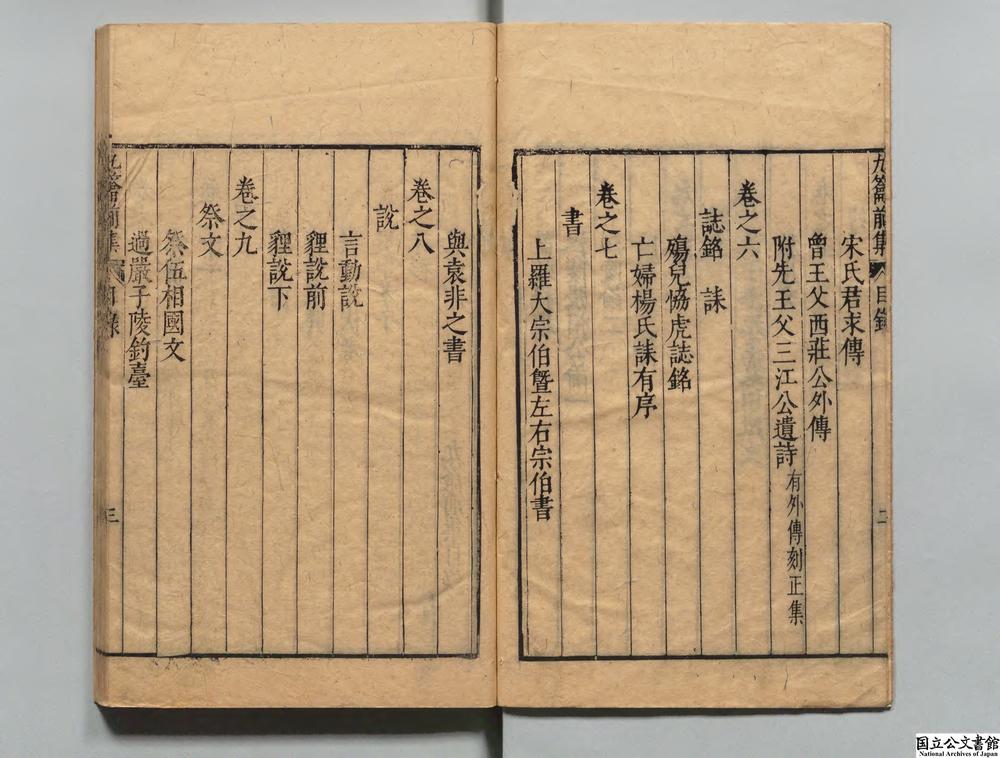 九籥前集 目錄 二
宋氏君求傳
曾王父西莊公外傳
附先王父三江公遺詩 有外傳刻正集
卷之六
誌銘 誄
殤兒恊虎誌銘
亡婦楊氏誄有序
卷之七
書
上羅大宗伯暨左右宗伯書
與袁非之書
卷之八
說
言動說
貍說前
貍說下
卷之九
祭文
祭伍相國文
過嚴子陵釣臺
九籥前集 目錄 三
国立公文書館
National Archives of Japan